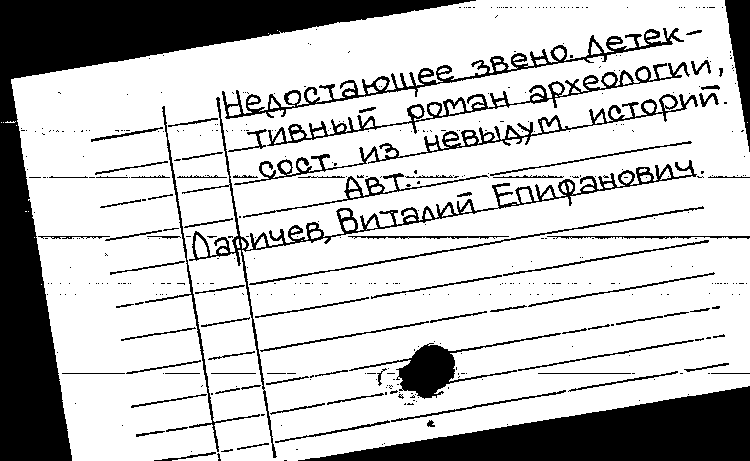 Недостающее звено. Детек-
тивный роман археологии,
сост. из невыдум. историй.
Авт.:
Ларичев, Виталий Епифанович.